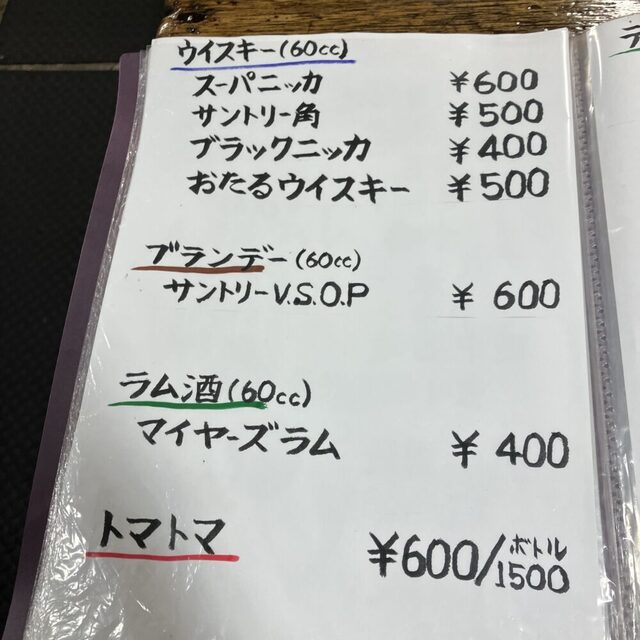 ウイスキー(60cc)
スーパニッカ ¥600
サントリー角 ¥500
ブラックニッカ ¥400
おたるウイスキー ¥500
ブランデー(60cc)
サントリーV.S.O.P ¥600
ラム酒(60cc)
マイヤーズラム ¥400
トマトマ ¥600/ボトル1500
テ